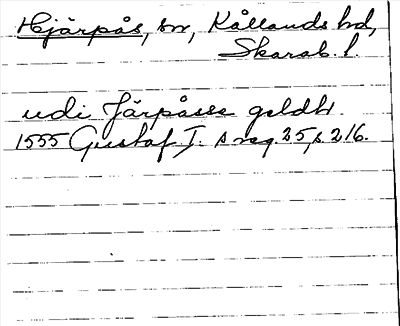 Hjärpås, sn, Kållands hd,
Skarab. l.
udi Järpåsse geldh.
1555 Gustaf I:s reg. 25, s. 216.